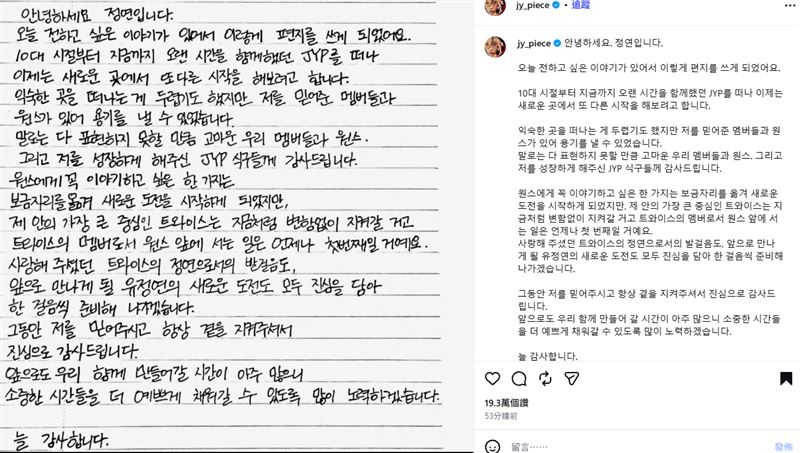 안녕하세요 정연입니다.
오늘 전하고 싶은 이야기가 있어서 이렇게 편지를 쓰게 되었어요.
10대 시절부터 지금까지 오랜 시간을 함께했던 JYP를 떠나
이제는 새로운 곳에서 또 다른 시작을 해보려고 합니다.
익숙한 곳을 떠나는 게 두렵기도 했지만 저를 믿어준 멤버들과
원스가 있어 용기를 낼 수 있었습니다.
말로는 다 표현하지 못할 만큼 고마운 우리 멤버들과 원스.
그리고 저를 성장하게 해주신 JYP 식구들께 감사드립니다.
원스에게 꼭 이야기하고 싶은 한 가지는
보금자리를 옮겨 새로운 도전을 시작하게 되었지만,
제 안의 가장 큰 중심인 트와이스는 지금처럼 변함없이 지켜갈 거고
트와이스의 멤버로서 원스 앞에 서는 일은 언제나 첫번째일 거예요.
사랑해 주셨던 트와이스의 정연으로서의 발걸음도,
앞으로 만나게 될 유정연의 새로운 도전도 모두 진심을 담아
한 걸음씩 준비해 나가겠습니다.
그동안 저를 믿어주시고 항상 곁을 지켜주셔서
진심으로 감사드립니다.
앞으로도 우리 함께 만들어갈 시간이 아주 많으니
소중한 시간들을 더 예쁘게 채워갈 수 있도록 많이 노력하겠습니다.
늘 감사합니다.
jy_piece • 追蹤
jy_piece 안녕하세요. 정연입니다.
오늘 전하고 싶은 이야기가 있어서 이렇게 편지를 쓰게 되었어요.
10대 시절부터 지금까지 오랜 시간을 함께했던 JYP를 떠나 이제는
새로운 곳에서 또 다른 시작을 해보려고 합니다.
익숙한 곳을 떠나는 게 두렵기도 했지만 저를 믿어준 멤버들과 원
스가 있어 용기를 낼 수 있었습니다.
말로는 다 표현하지 못할 만큼 고마운 우리 멤버들과 원스. 그리고
저를 성장하게 해주신 JYP 식구들께 감사드립니다.
원스에게 꼭 이야기하고 싶은 한 가지는 보금자리를 옮겨 새로운
도전을 시작하게 되었지만, 제 안의 가장 큰 중심인 트와이스는 지
금처럼 변함없이 지켜갈 거고 트와이스의 멤버로서 원스 앞에 서
는 일은 언제나 첫 번째일 거예요.
사랑해 주셨던 트와이스의 정연으로서의 발걸음도, 앞으로 만나
게 될 유정연의 새로운 도전도 모두 진심을 담아 한 걸음씩 준비해
나가겠습니다.
그동안 저를 믿어주시고 항상 곁을 지켜주셔서 진심으로 감사드
립니다.
앞으로도 우리 함께 만들어 갈 시간이 아주 많으니 소중한 시간들
을 더 예쁘게 채워갈 수 있도록 많이 노력하겠습니다.
늘 감사합니다.
19.3萬個讚
53分鐘前
留言……
發佈